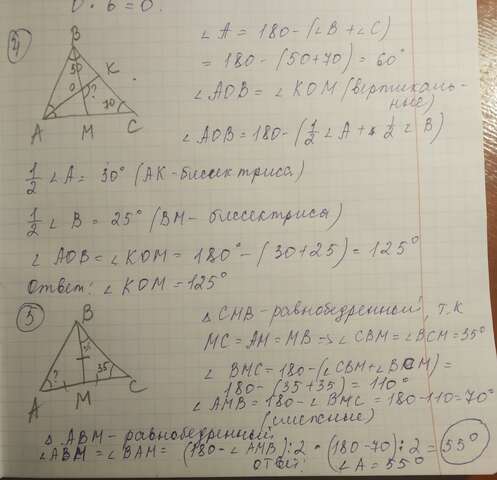 0 · 6 = 0.
4
B
50
K
O
?
70
A
M
C
∠A = 180 - (∠B + ∠C)
= 180 - (50+70) = 60°
∠AOB = ∠KOM (вертикаль-
ные)
∠AOB = 180 - (1/2 ∠A + 1/2 ∠B)
1/2 ∠A = 30° (AK - биссектриса)
1/2 ∠B = 25° (BM - биссектриса)
∠AOB = ∠KOM = 180° - (30+25) = 125°
Ответ: ∠KOM = 125°
5
B
?
35
A
M
C
△ CMB - равнобедренный, т.к
MC = AM = MB => ∠CBM = ∠BCM = 35°
∠BMC = 180 - (∠CBM + ∠BCM) =
180 - (35+35) = 110°
∠AMB = 180 - ∠BMC = 180 - 110 = 70°
(смежные)
△ ABM - равнобедренный
∠ABM = ∠BAM = (180 - ∠AMB) : 2 = (180 - 70) : 2 = 55°
ответ: ∠A = 55°